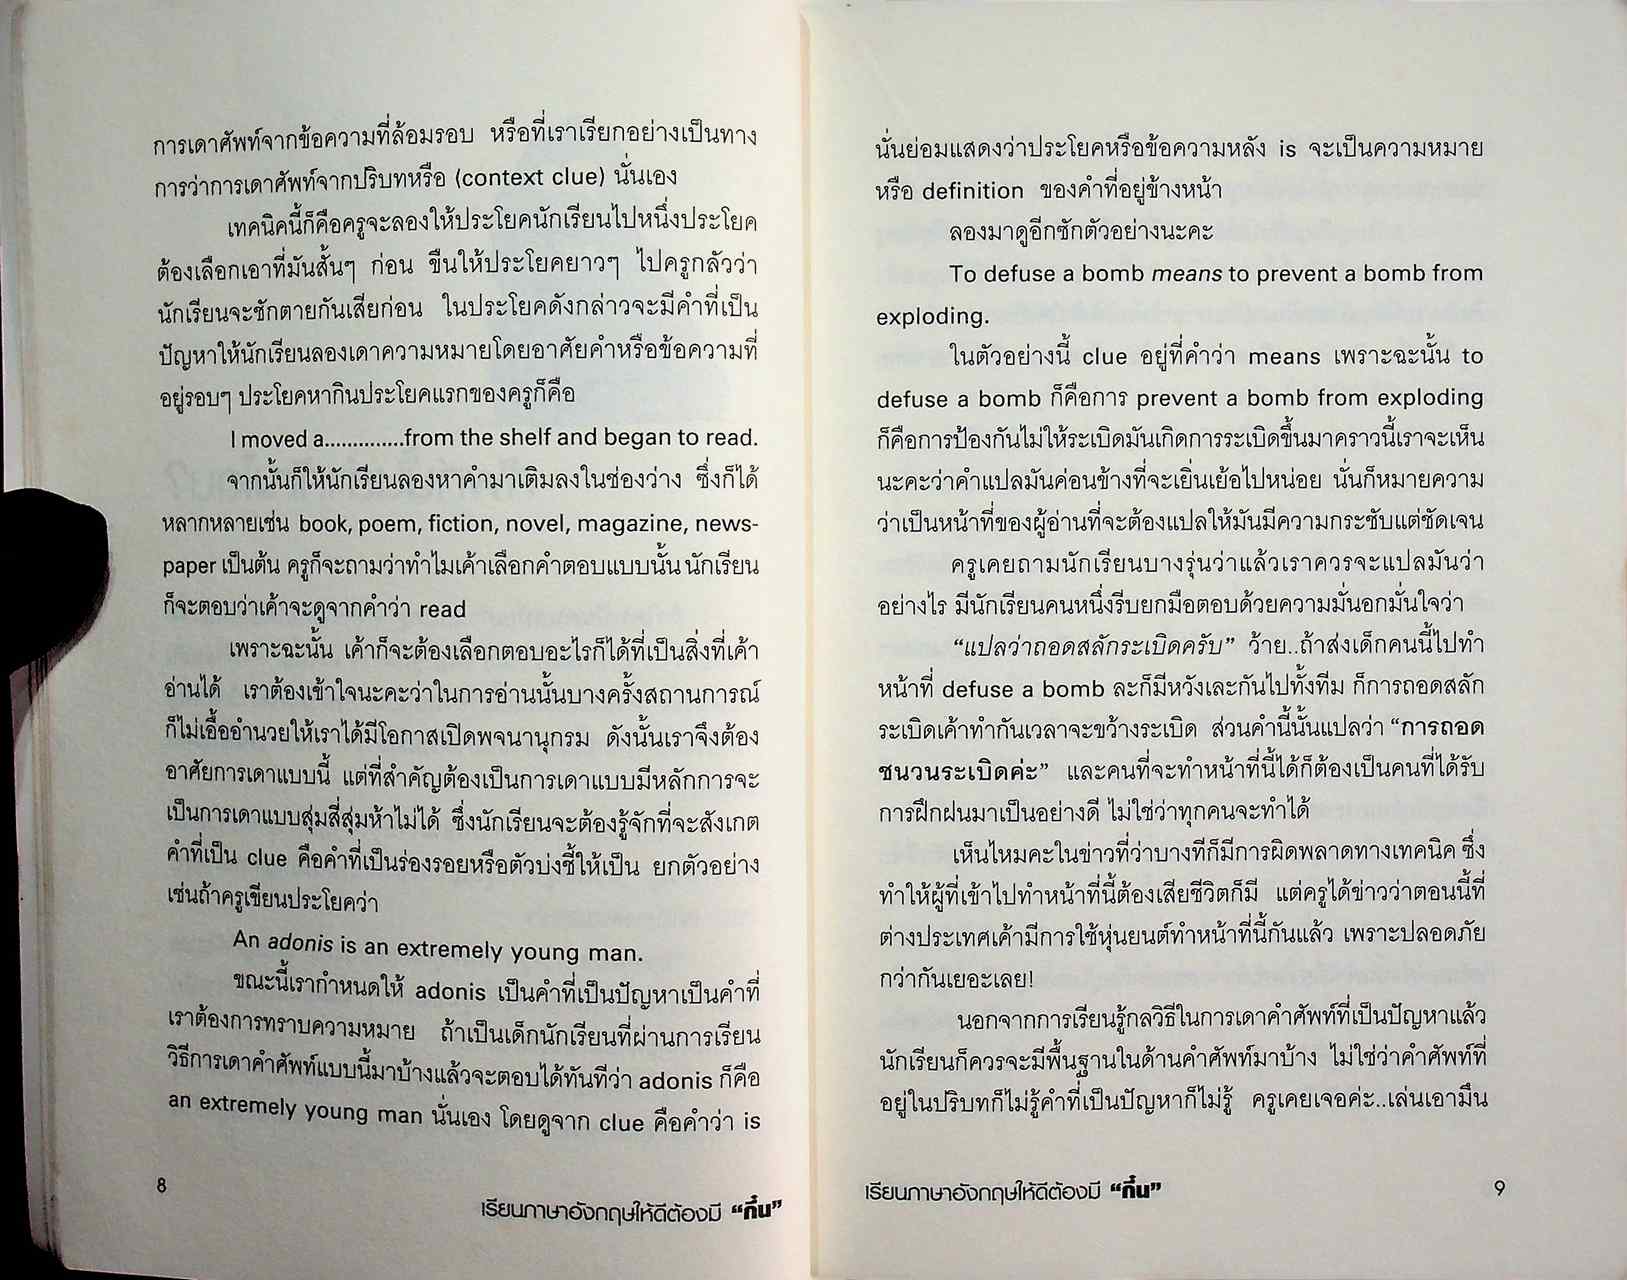 การเดาศัพท์จากข้อความที่ล้อมรอบ หรือที่เราเรียกอย่างเป็นทาง
การว่าการเดาศัพท์จากปริบทหรือ (context clue) นั่นเอง
เทคนิคนี้ก็คือครูจะลองให้ประโยคนักเรียนไปหนึ่งประโยค
ต้องเลือกเอาที่มันสั้นๆ ก่อน ขืนให้ประโยคยาวๆ ไปครูกลัวว่า
นักเรียนจะชักตายกันเสียก่อน ในประโยคดังกล่าวจะมีคำที่เป็น
ปัญหาให้นักเรียนลองเดาความหมายโดยอาศัยคำหรือข้อความที่
อยู่รอบๆ ประโยคหากินประโยคแรกของครูก็คือ
I moved a..............from the shelf and began to read.
จากนั้นก็ให้นักเรียนลองหาคำมาเติมลงในช่องว่าง ซึ่งก็ได้
หลากหลายเช่น book, poem, fiction, novel, magazine, news-
paper เป็นต้น ครูก็จะถามว่าทำไมเค้าเลือกคำตอบแบบนั้น นักเรียน
ก็จะตอบว่าเค้าจะดูจากคำว่า read
เพราะฉะนั้น เค้าก็จะต้องเลือกตอบอะไรก็ได้ที่เป็นสิ่งที่เค้า
อ่านได้ เราต้องเข้าใจนะคะว่าในการอ่านนั้นบางครั้งสถานการณ์
ก็ไม่เอื้ออำนวยให้เราได้มีโอกาสเปิดพจนานุกรม ดังนั้นเราจึงต้อง
อาศัยการเดาแบบนี้ แต่ที่สำคัญต้องเป็นการเดาแบบมีหลักการจะ
เป็นการเดาแบบสุ่มสี่สุ่มห้าไม่ได้ ซึ่งนักเรียนจะต้องรู้จักที่จะสังเกต
คำที่เป็น clue คือคำที่เป็นร่องรอยหรือตัวบ่งชี้ให้เป็น ยกตัวอย่าง
เช่นถ้าครูเขียนประโยคว่า
An adonis is an extremely young man.
ขณะนี้เรากำหนดให้ adonis เป็นคำที่เป็นปัญหาเป็นคำที่
เราต้องการทราบความหมาย ถ้าเป็นเด็กนักเรียนที่ผ่านการเรียน
วิธีการเดาคำศัพท์แบบนี้มาบ้างแล้วจะตอบได้ทันทีว่า adonis ก็คือ
an extremely young man นั่นเอง โดยดูจาก clue คือคำว่า is
8
เรียนภาษาอังกฤษให้ดีต้องมี “กึ๋น”
นั่นย่อมแสดงว่าประโยคหรือข้อความหลัง is จะเป็นความหมาย
หรือ definition ของคำที่อยู่ข้างหน้า
ลองมาดูอีกซักตัวอย่างนะคะ
To defuse a bomb means to prevent a bomb from
exploding.
ในตัวอย่างนี้ clue อยู่ที่คำว่า means เพราะฉะนั้น to
defuse a bomb ก็คือการ prevent a bomb from exploding
ก็คือการป้องกันไม่ให้ระเบิดมันเกิดการระเบิดขึ้นมาคราวนี้เราจะเห็น
นะคะว่าคำแปลมันค่อนข้างที่จะเยิ่นเย้อไปหน่อย นั่นก็หมายความ
ว่าเป็นหน้าที่ของผู้อ่านที่จะต้องแปลให้มันมีความกระชับแต่ชัดเจน
ครูเคยถามนักเรียนบางรุ่นว่าแล้วเราควรจะแปลมันว่า
อย่างไร มีนักเรียนคนหนึ่งรีบยกมือตอบด้วยความมั่นอกมั่นใจว่า
“แปลว่าถอดสลักระเบิดครับ” ว้าย..ถ้าส่งเด็กคนนี้ไปทำ
หน้าที่ defuse a bomb ละก็มีหวังเละกันไปทั้งทีม ก็การถอดสลัก
ระเบิดเค้าทำกันเวลาจะขว้างระเบิด ส่วนคำนี้นั้นแปลว่า “การถอด
ชนวนระเบิดค่ะ” และคนที่จะทำหน้าที่นี้ได้ก็ต้องเป็นคนที่ได้รับ
การฝึกฝนมาเป็นอย่างดี ไม่ใช่ว่าทุกคนจะทำได้
เห็นไหมคะในข่าวที่ว่าบางทีก็มีการผิดพลาดทางเทคนิค ซึ่ง
ทำให้ผู้ที่เข้าไปทำหน้าที่นี้ต้องเสียชีวิตก็มี แต่ครูได้ข่าวว่าตอนนี้ที่
ต่างประเทศเค้ามีการใช้หุ่นยนต์ทำหน้าที่นี้กันแล้ว เพราะปลอดภัย
กว่ากันเยอะเลย!
นอกจากการเรียนรู้กลวิธีในการเดาคำศัพท์ที่เป็นปัญหาแล้ว
นักเรียนก็ควรจะมีพื้นฐานในด้านคำศัพท์มาบ้าง ไม่ใช่ว่าคำศัพท์ที่
อยู่ในปริบทก็ไม่รู้คำที่เป็นปัญหาก็ไม่รู้ ครูเคยเจอค่ะ..เล่นเอามึน
เรียนภาษาอังกฤษให้ดีต้องมี “กึ๋น”
9